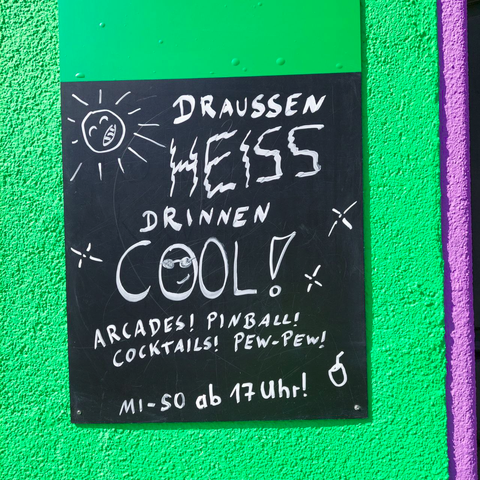 DRAUSSEN
HEISS
DRINNEN
COOL!
ARCADES! PINBALL!
COCKTAILS! PEW-PEW!
MI-SO ab 17 Uhr!